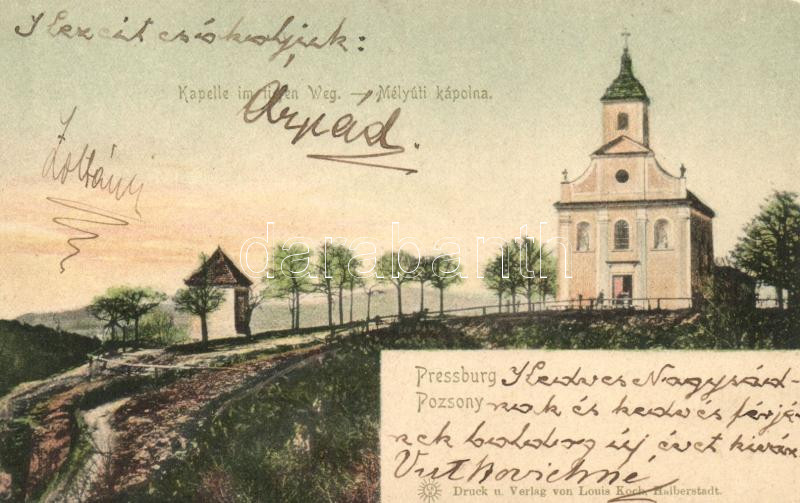 Kezeit csókoljuk:
Kapelle im tiefen Weg. — Mélyúti kápolna.
Árpád.
Zoltán
darabanth.com
Pressburg
Pozsony
Kedves Nagysád-
nak és kedves férjé-
nek boldog új évet kíván
Vutkovichné
Druck u. Verlag von Louis Koch, Halberstadt.